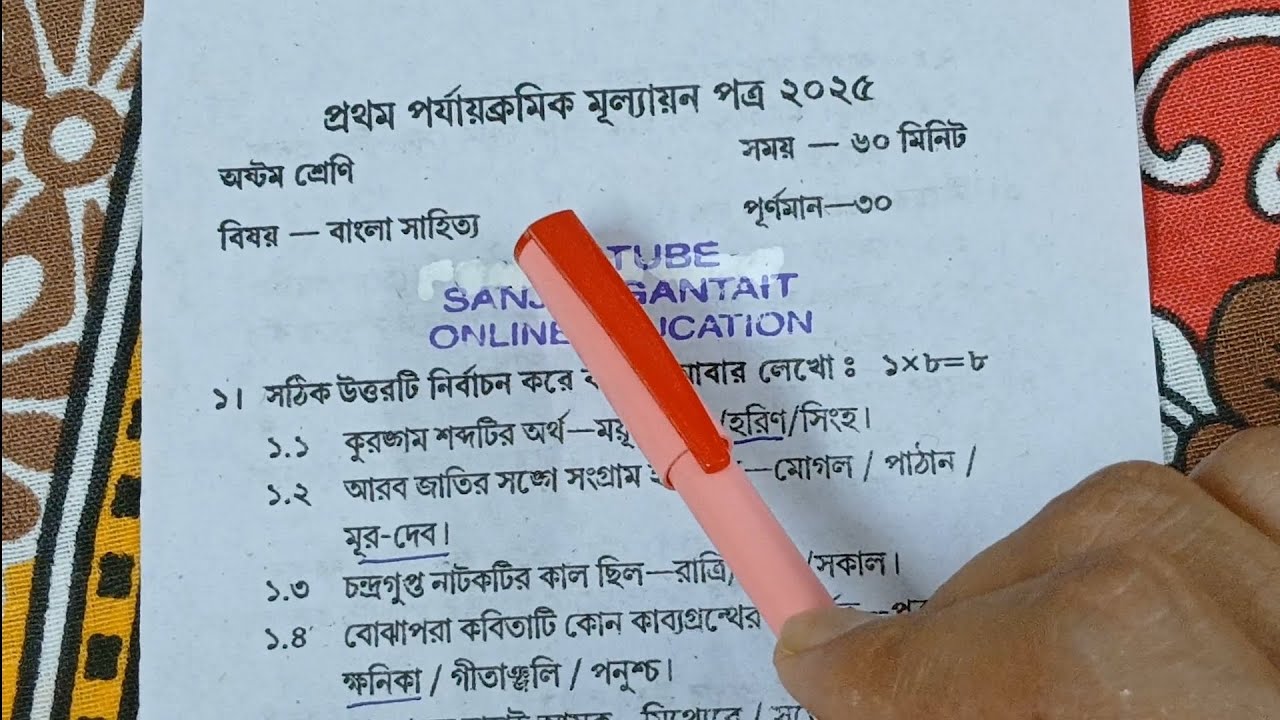 প্রথম পর্যায়ক্রমিক মূল্যায়ন পত্র ২০২৫
অষ্টম শ্রেণি
সময় — ৬০ মিনিট
বিষয় — বাংলা সাহিত্য
পূর্ণমান—৩০
TUBE
GANTAIT
ONLINE
১। সঠিক উত্তরটি নির্বাচন করে লেখো ঃ ১×৮=৮
১.১ কুরঙ্গাম শব্দটির অর্থ—/হরিণ/সিংহ।
১.২ আরব জাতির সঙ্গে সংগ্রাম —মোগল / পাঠান /
মূর-দেব।
১.৩ চন্দ্রগুপ্ত নাটকটির কাল ছিল—রাত্রি/ /সকাল।
১.৪ বোঝাপরা কবিতাটি কোন কাব্যগ্রন্থের
ক্ষনিকা / গীতাঞ্জলি / পনুশ্চ।